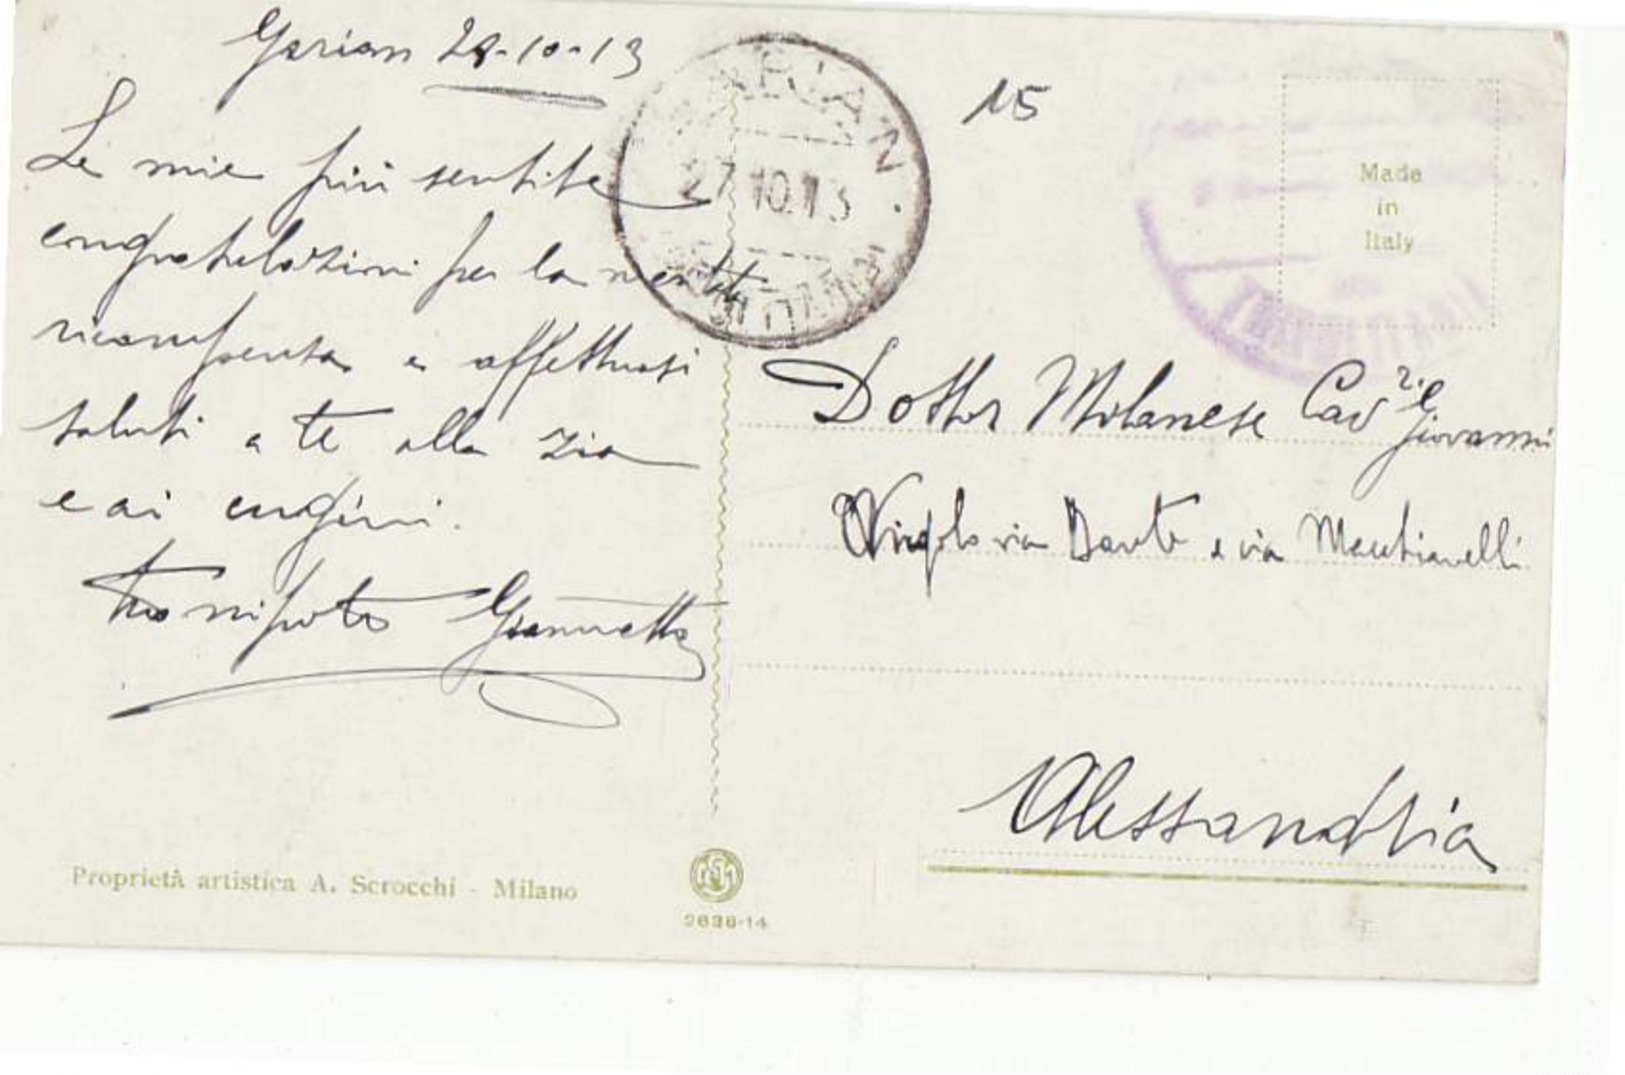 Garian 28-10-13
Le mie più sentite
congratulazioni per la meritata
ricompensa e affettuosi
saluti a te alla zia
e ai cugini.
Tuo nipote Giannetto
GARIAN
27.10.13
15
Made
in
Italy
TRIPOLITANIA
Dottor Milanese Cav. Giovanni
Angolo via Dante e via Macchiavelli
Alessandria
Proprietà artistica A. Scrocchi - Milano
2636-14